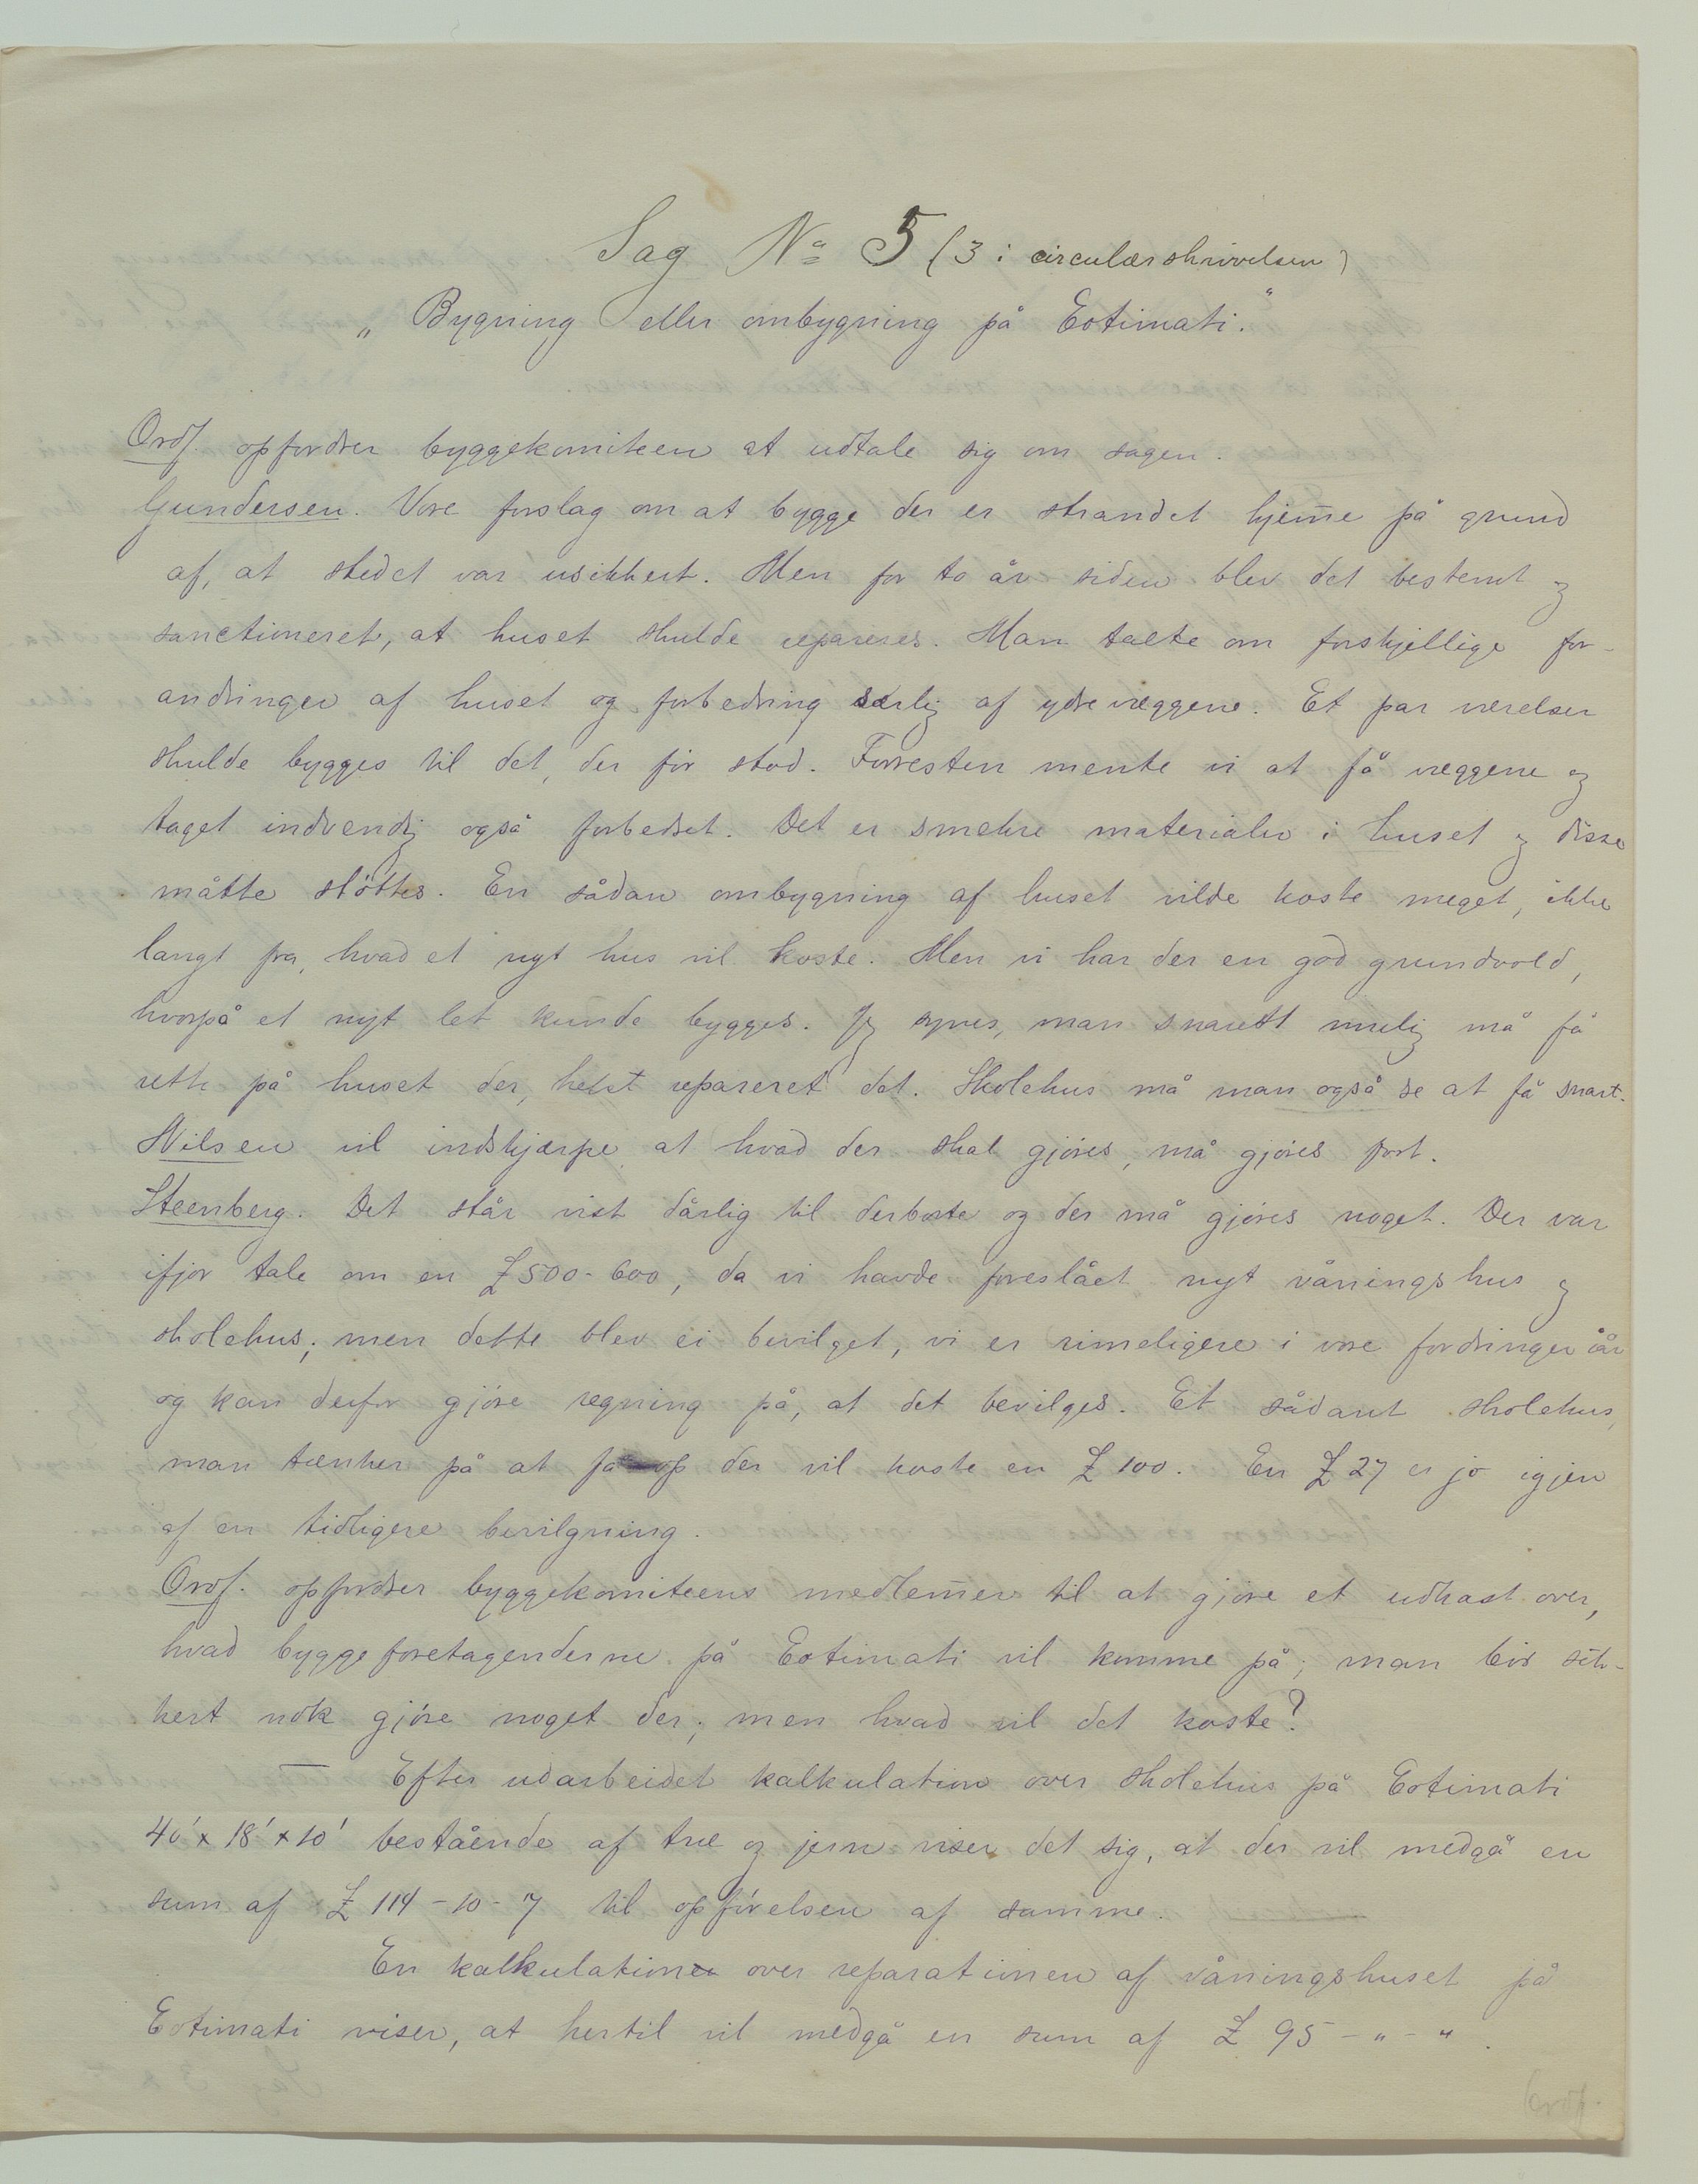 Sag No 5 (3 i circulærskrivelsen)
„Bygning eller ombygning på Eotimati."
Ordf. opfordrer byggekomiteen at udtale sig om sagen.
Gundersen. Vore forslag om at bygge der er strandet hjem̄e på grund
af, at stedet var usikkert. Men for to år siden blev det bestemt og
sanctioneret, at huset skulde repareres. Man talte om forskjellige for-
andringer af huset og forbedring særlig af ydre væggene. Et par værelser
skulde bygges til det, der før stod. Forresten mente vi at få væggene og
taget indvendig også forbedret. Det er smekre materialer i huset og disse
måtte støttes. En sådan ombygning af huset vilde koste meget, ikke
langt fra, hvad et nyt hus vil koste. Men vi har der en god grundvold,
hvorpå et nyt let kunde bygges. Jeg synes, man snarest mulig må få
rette på huset der, helst repareret det. Skolehus må man også se at få snart.
Nilsen vil indskjærpe at hvad der skal gjøres, må gjøres fort.
Steenberg. Det står vist dårlig til derborte og der må gjøres noget. Der var
ifjor tale om en £500-600, da vi havde foreslået nyt våningshus og
skolehus; men dette blev ei bevilget, vi er rimeligere i vore fordringer iår
og kan derfor gjøre regning på, at det bevilges. Et sådant skolehus,
man tænker på at få op der vil koste en £100. En £27 er jo igjen
af en tidligere bevilgning.
Ordf. opfordrer byggekomiteens medlem̄er til at gjøre et udkast over,
hvad byggeforetagenderne på Eotimati vil komme på; man bør sik-
kert nok gjøre noget der; men hvad vil det koste?
— Efter udarbeidet kalkulation over skolehus på Eotimati
40' x 18' x 10' bestående af træ og jern viser det sig, at der vil medgå en
sum af £ 114-10-7 til opførelsen af samme.
En kalkulation over reparationen af våningshuset på
Eotimati viser, at hertil vil medgå en sum af £ 95-"-".
Ordf.